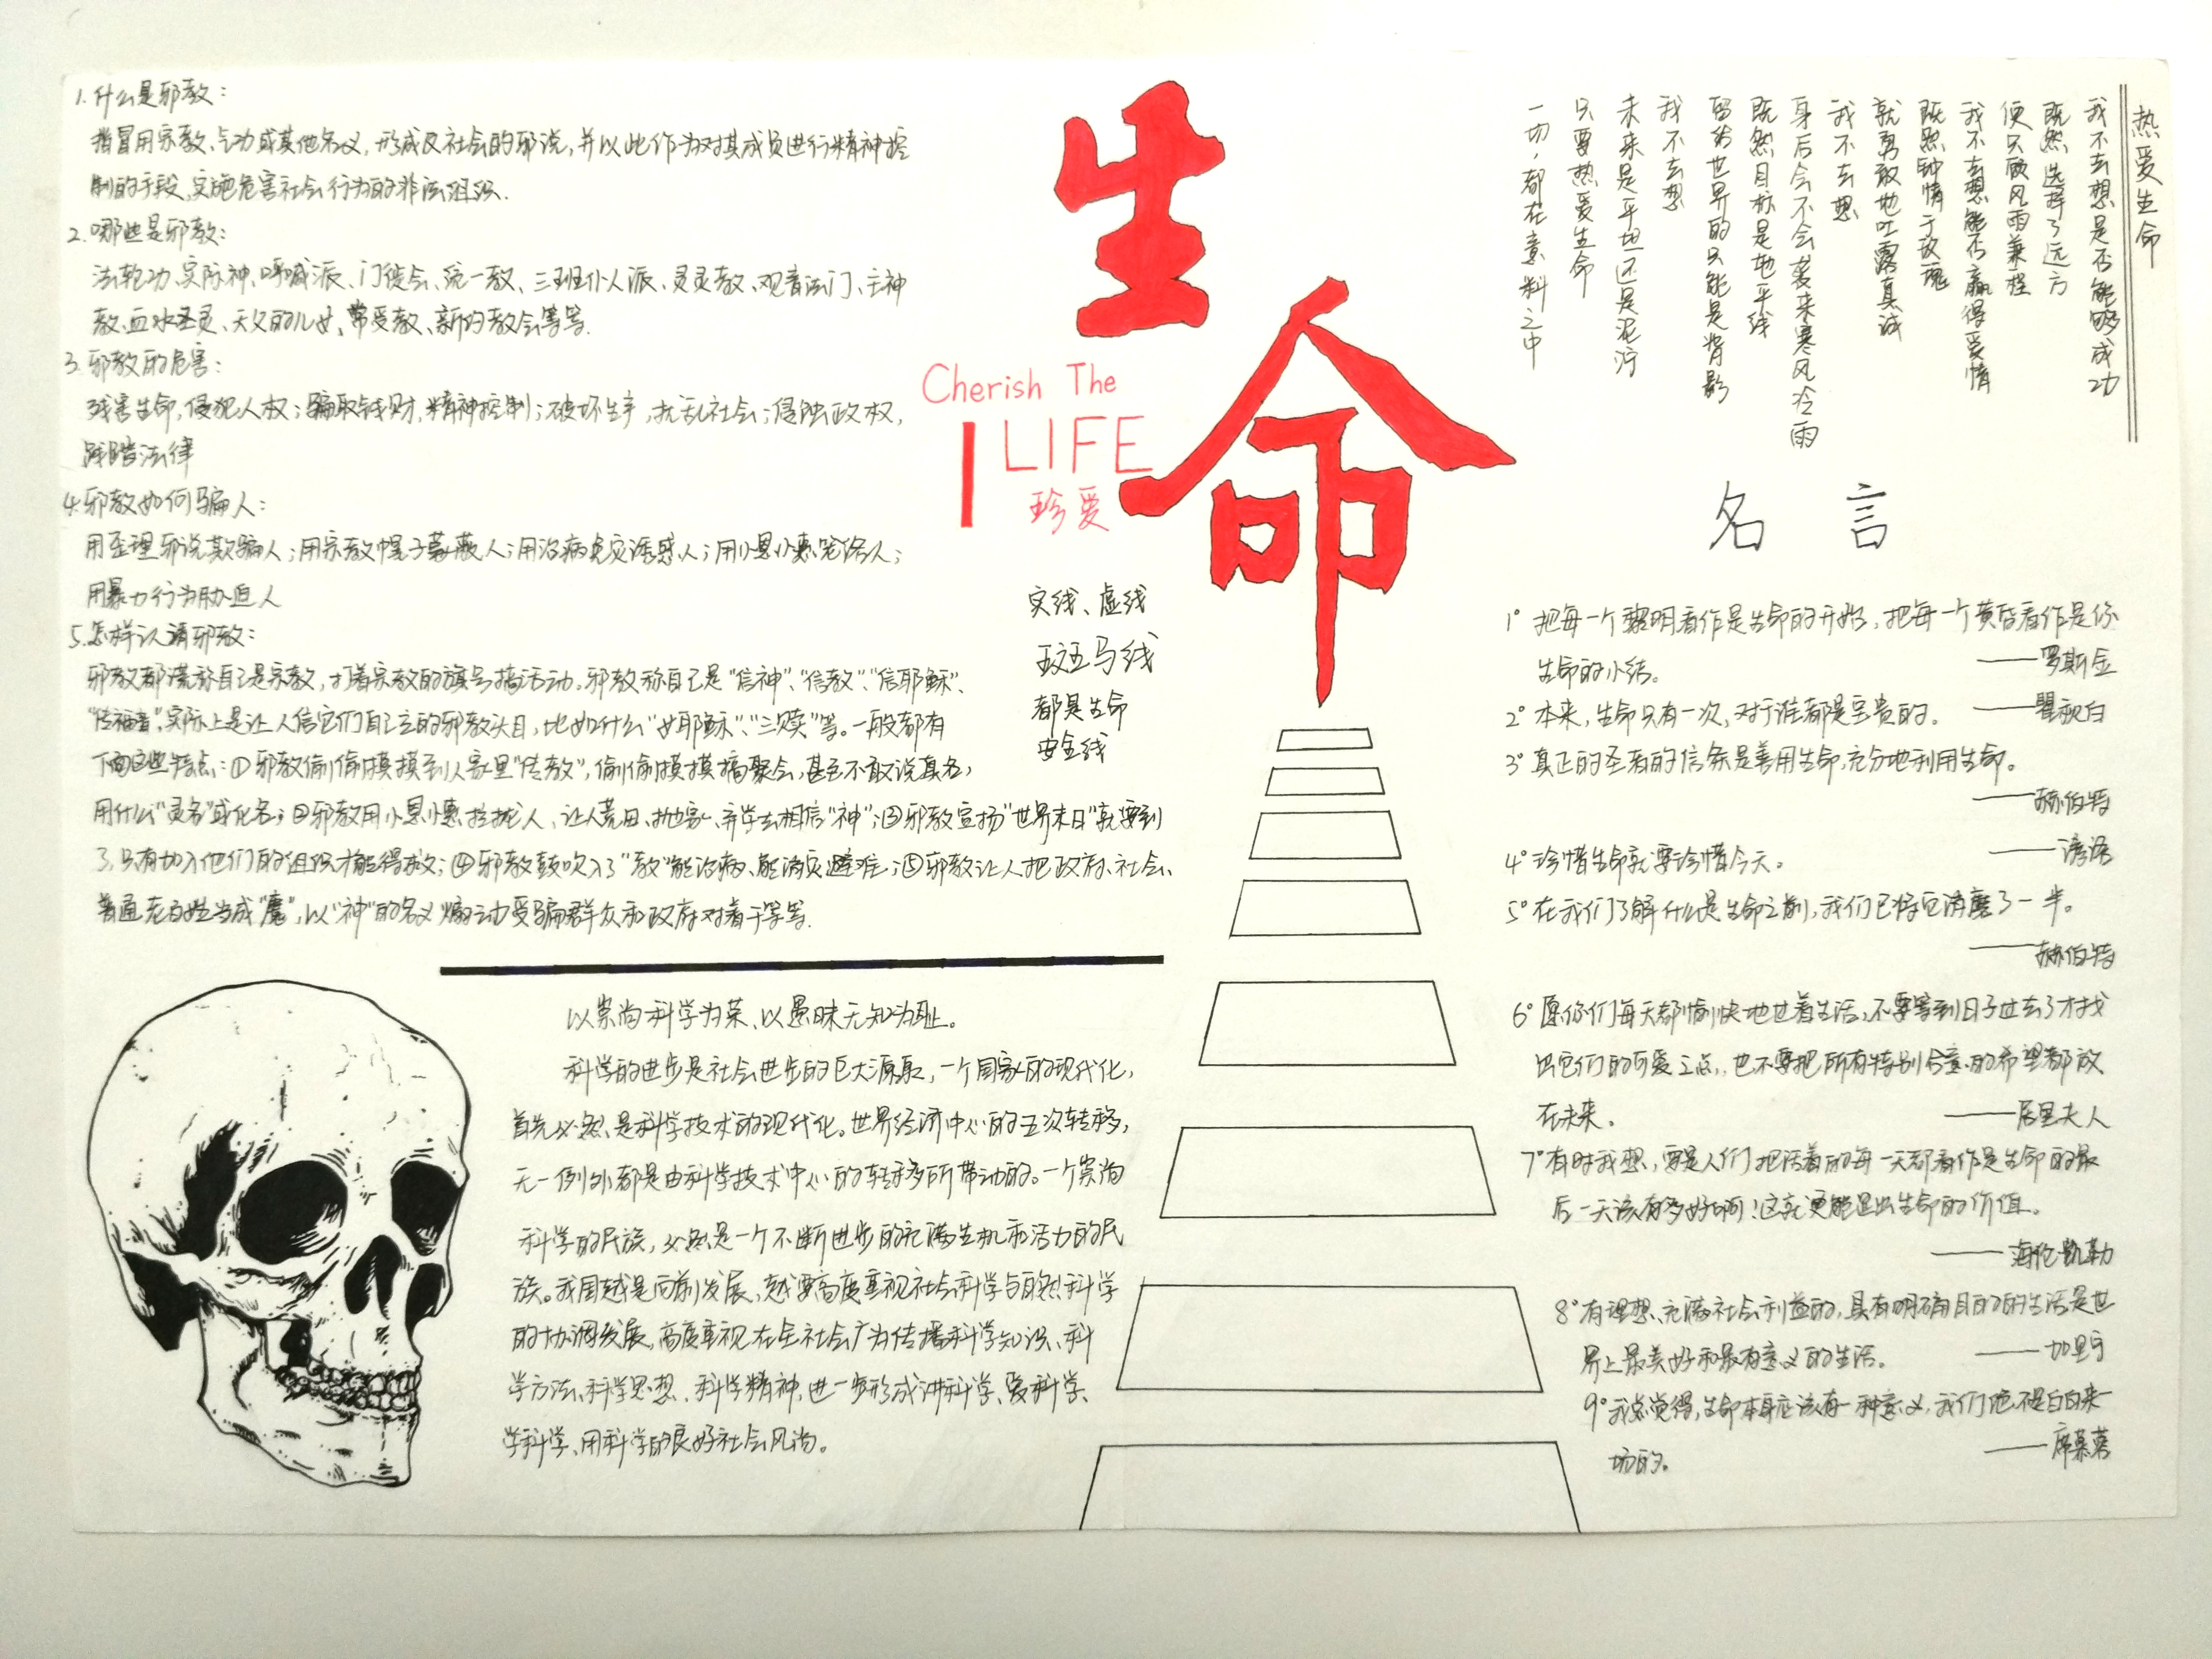 1.什么是邪教：
指冒用宗教、气功或其他名义，形成反社会的邪说，并以此作为对其成员进行精神控
制的手段，实施危害社会行为的非法组织.
2.哪些是邪教：
法轮功、实际神、呼喊派、门徒会、统一教、三班仆人派、灵灵教、观音法门、主神
教、血水圣灵、天父的儿女、常受教、新约教会等等.
3.邪教的危害：
残害生命，侵犯人权；骗取钱财，精神控制；破坏生产，扰乱社会；侵蚀政权，
践踏法律
4.邪教如何骗人：
用歪理邪说欺骗人；用宗教幌子蒙蔽人；用治病免灾诱惑人；用小恩小惠笼络人；
用暴力行为胁迫人
5.怎样认清邪教：
邪教都谎称自己是宗教，打着宗教的旗号搞活动。邪教称自己是“信神”、“信教”、“信耶稣”、
“传福音”，实际上是让人信它们自己立的邪教头目，比如什么“女耶稣”、“三赎”等。一般都有
下面这些特点：①邪教偷偷摸摸到人家里“传教”，偷偷摸摸搞聚会，甚至不敢说真名，
用什么“灵名”或化名；②邪教用小恩小惠拉拢人，让人荒田、抛家、弃学去相信“神”；③邪教宣扬“世界末日”就要到
了，只有加入他们的组织才能得救；④邪教鼓吹入了“教”能治病、能消灾避难；⑤邪教让人把政府、社会、
普通老百姓当成“魔”，以“神”的名义煽动受骗群众和政府对着干等等.
以崇尚科学为荣、以愚昧无知为耻。
科学的进步是社会进步的巨大源泉，一个国家的现代化，
首先必然是科学技术的现代化。世界经济中心的五次转移，
无一例外都是由科学技术中心的转移所带动的。一个崇尚
科学的民族，必然是一个不断进步的充满生机和活力的民
族。我国越是向前发展，越要高度重视社会科学与自然科学
的协调发展，高度重视在全社会广为传播科学知识、科
学方法、科学思想、科学精神，进一步形成讲科学、爱科学、
学科学、用科学的良好社会风尚。
生命
Cherish The
LIFE
珍爱
实线、虚线
斑马线
都是生命
安全线
热爱生命
我不去想是否能够成功
既然选择了远方
便只顾风雨兼程
我不去想能否赢得爱情
既然钟情于玫瑰
就勇敢地吐露真诚
我不去想
身后会不会袭来寒风冷雨
既然目标是地平线
留给世界的只能是背影
我不去想
未来是平坦还是泥泞
只要热爱生命
一切，都在意料之中
名言
1°把每一个黎明看作是生命的开始，把每一个黄昏看作是你
生命的小结。 ——罗斯金
2°本来，生命只有一次，对于谁都是宝贵的。 ——瞿秋白
3°真正的圣者的信条是善用生命，充分地利用生命。
——赫伯特
4°珍惜生命就要珍惜今天。 ——谚语
5°在我们了解什么是生命之前，我们已将它消磨了一半。
——赫伯特
6°愿你们每天都愉快地过着生活，不要等到日子过去了才找
出它们的可爱之点，也不要把所有特别合意的希望都放
在未来。 ——居里夫人
7°有时我想，要是人们把活着的每一天都看作是生命的最
后一天该有多好啊！这就更能显出生命的价值。
——海伦凯勒
8°有理想、充满社会利益的，具有明确目的的生活是世
界上最美好和最有意义的生活。 ——加里宁
9°我总觉得，生命本身应该有一种意义，我们绝不是白白来一
场的。 ——席慕蓉